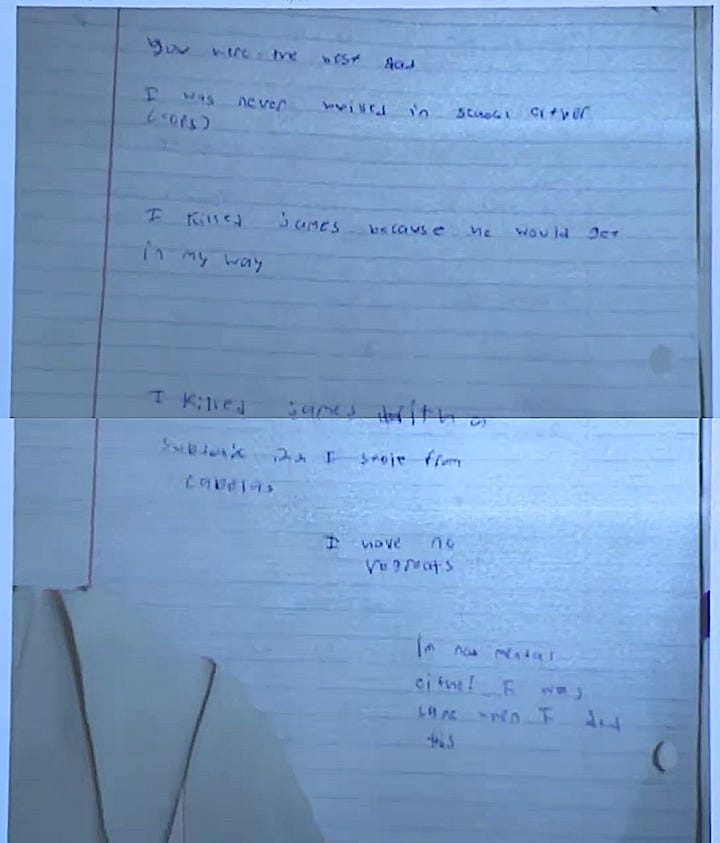 You were the best dad
I was never bullied in school either
(cops)
I killed James because he would get
in my way
I killed James with a
I stole from
cabelas
I have no
regreats
Im not mental
either I was
sane when I did
this